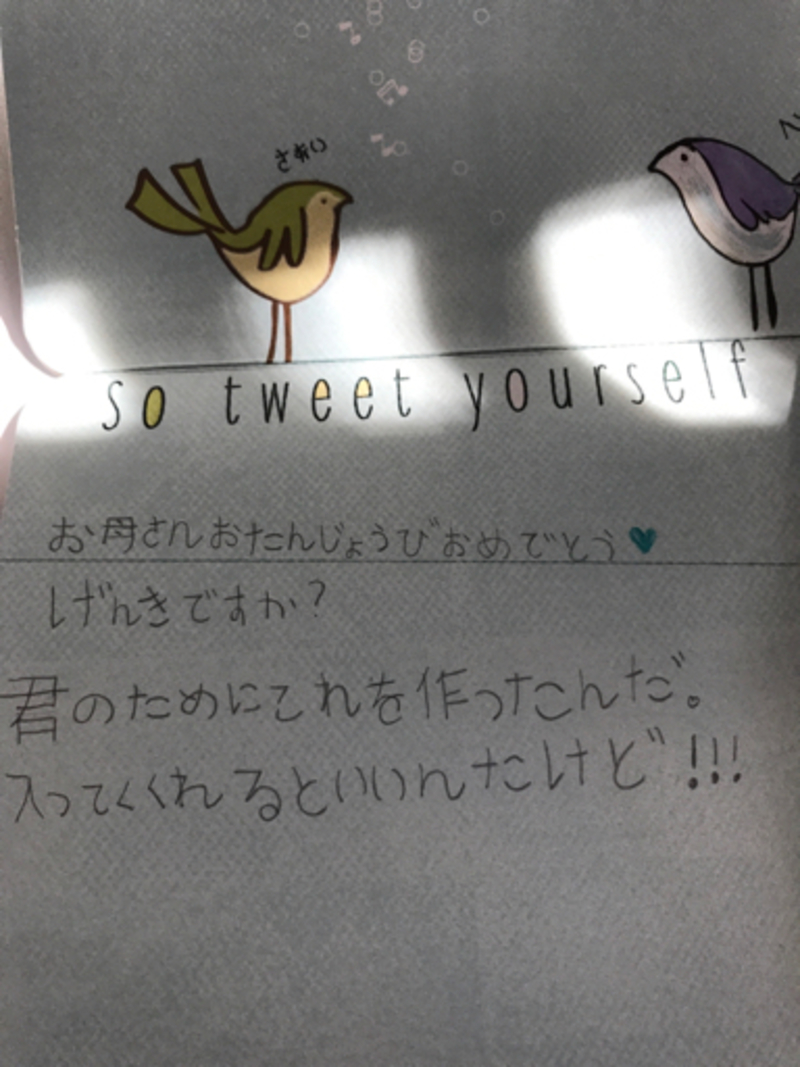 so tweet yourself
お母さんおたんじょうびおめでとう♥
げんきですか？
君のためにこれを作ったこんだ。
入ってくれるといいんたけど!!!